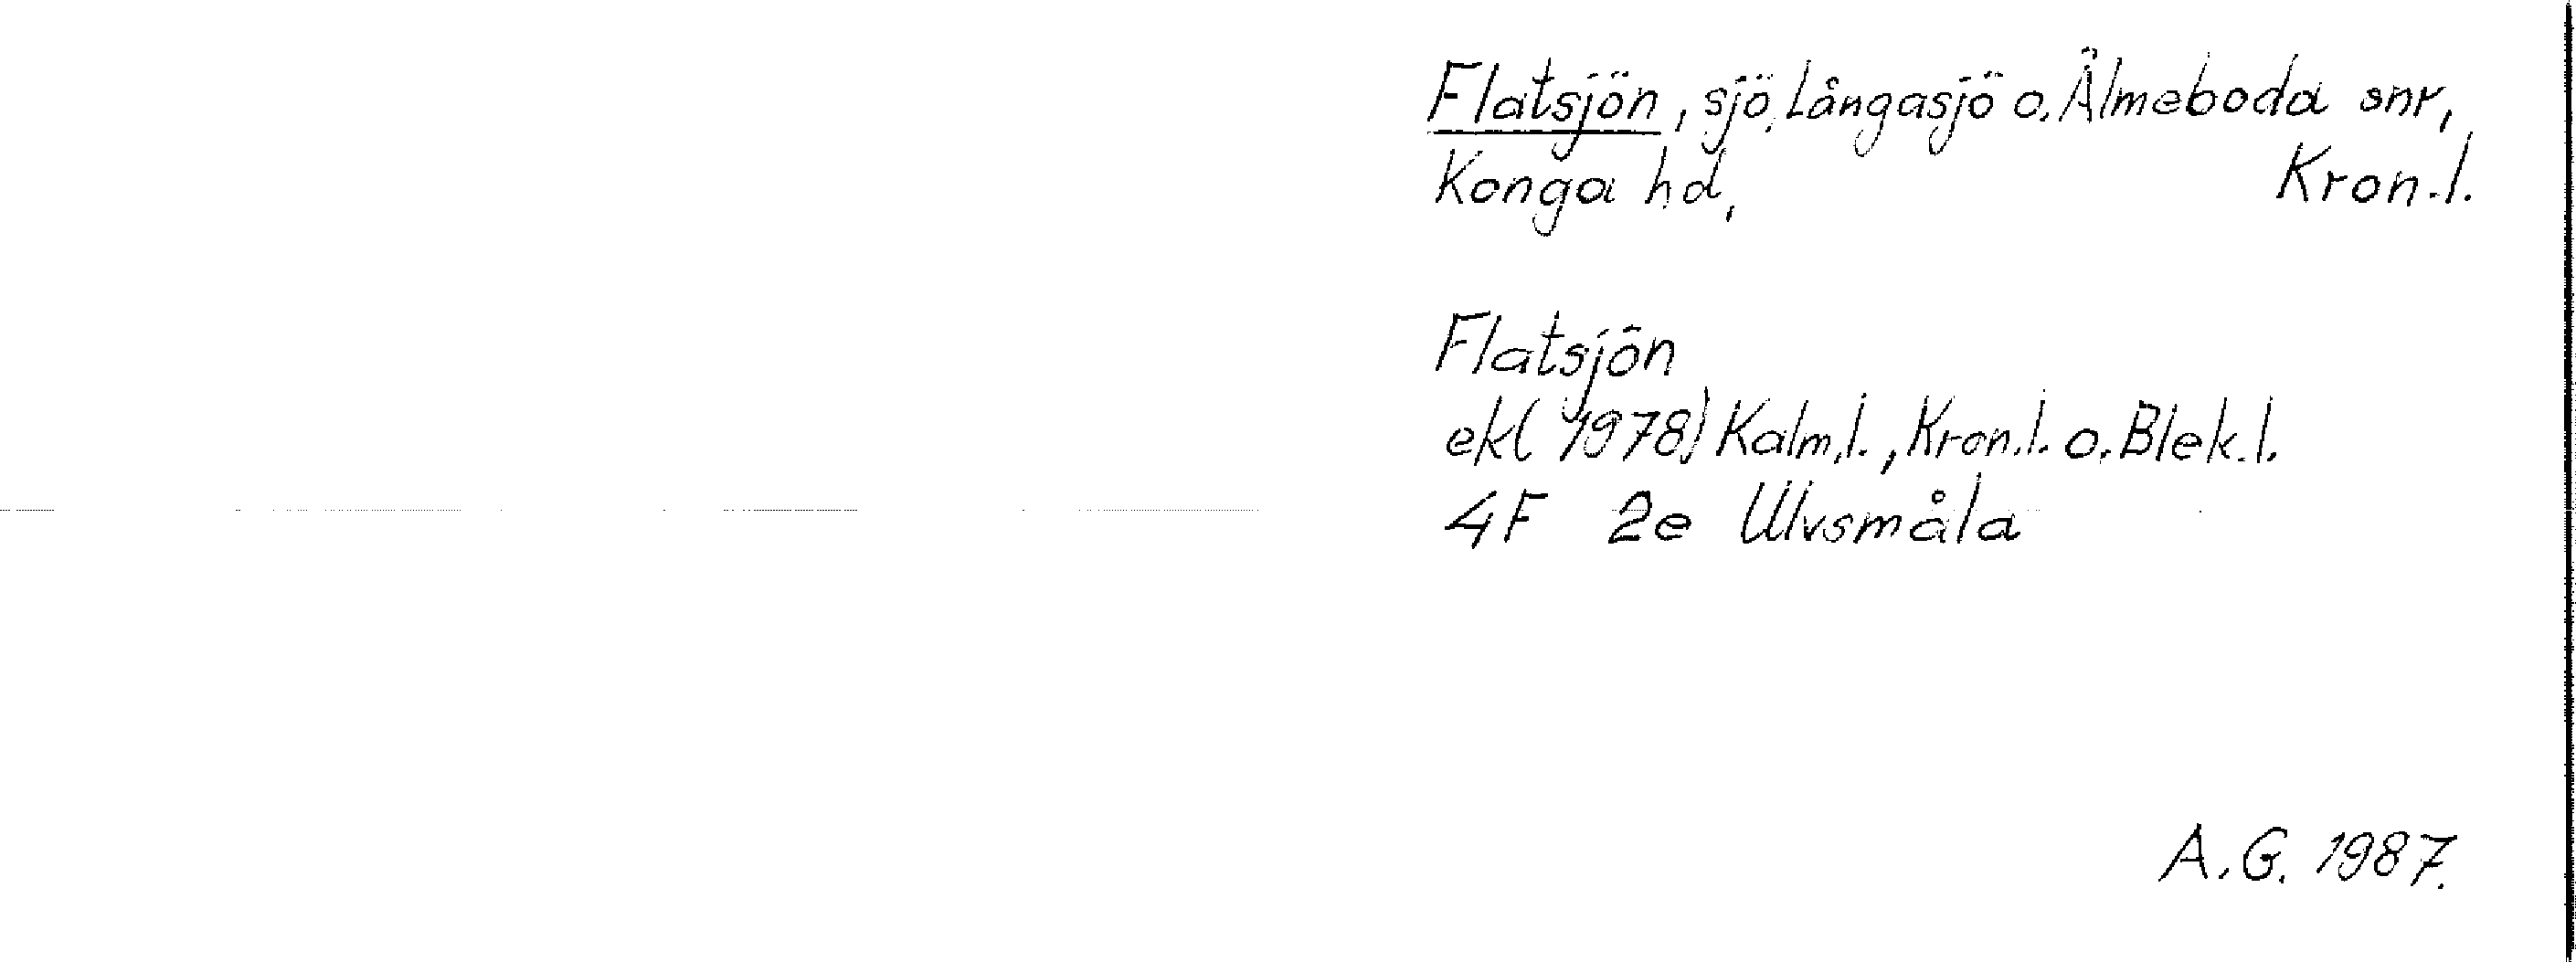 Flatsjön, sjö, Långasjö o. Älmeboda snr,
Konga hd, Kron.l.
Flatsjön
ek (1978) Kalm.l., Kron.l. o. Blek.l.
4F 2e Ulvsmåla
A.G. 1987.